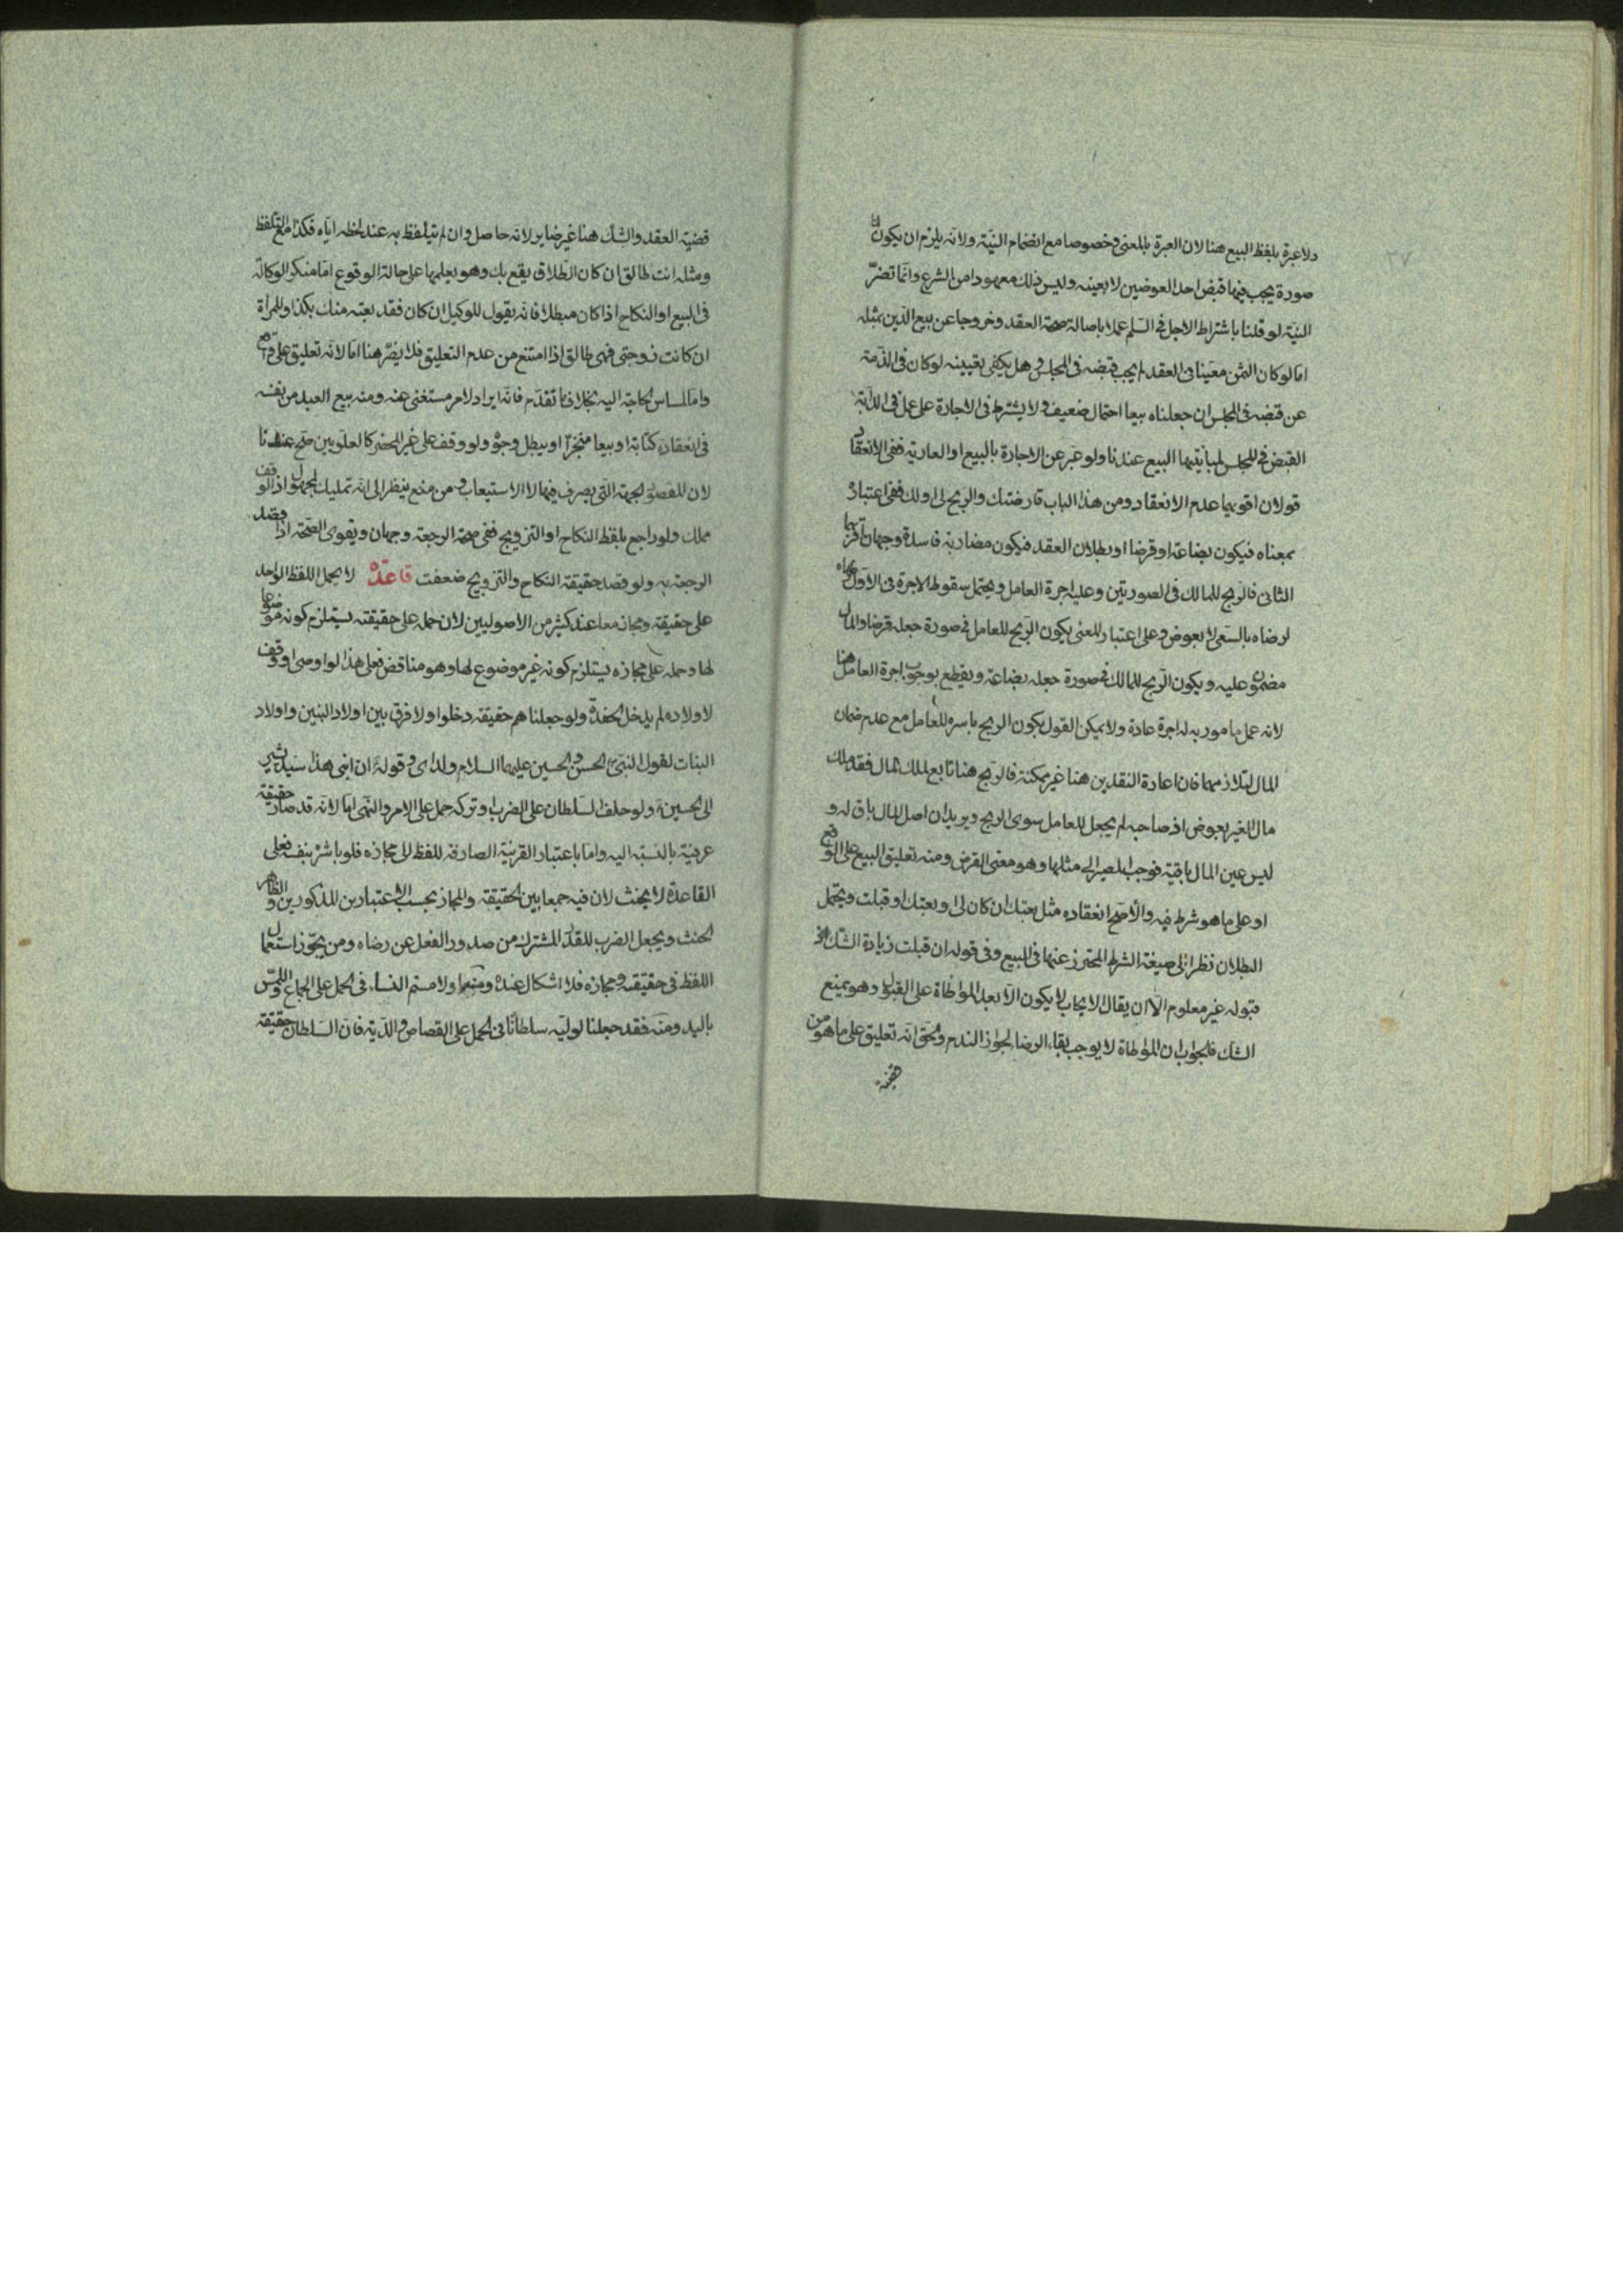 ولا عبرة بلفظ البيع هنا لان العبرة بالمعنى وخصوصا مع انضمام النيّة ولانه يلزم ان يكون لنا
صورة يجب فيها قبض احد العوضين لا بعينه وليس ذلك معهودا من الشرع وانّما تضرّ
النية لو قلنا باشتراط الاجل في السّلم عملا باصالة صحة العقد وخروجا عن بيع الدّين بمثله
اما لو كان الثمن معيّنا في العقد لم يجب قبضه في المجلس وهل يكفى تعيينه لو كان في الذّمة
عن قبضه في المجلس ان جعلناه بيعا احتمال ضعيف ولا يشترط في الاجارة على عمل في الدابّة
القبض في المجلس لمباينتها البيع عندنا ولو عبّر عن الاجارة بالبيع او العارية ففى الانعقاد
قولان اقويهما عدم الانعقاد ومن هذا الباب قارضتك والربح لى او لك ففى اعتباره
بمعناه فيكون بضاعة او قرضا او بطلان العقد فيكون مضاربة فاسدة وجهان اقربهما
الثانى فالربح للمالك في الصورتين وعليه اجرة العامل ويحتمل سقوط الاجرة في الاوّل
لرضاه بالسعى لا بعوض وعلى اعتبار المعنى يكون الرّبح للعامل في صورة جعله قرضا والمال
مضمون عليه ويكون الرّبح للمالك في صورة جعله بضاعة ويقطع بوجوب اجرة العامل هنا
لانه عمل مأمور به له اجرة عادة ولا يمكن القول بكون الربح باسره للعامل مع عدم ضمان
المال لتلازمهما فان اعادة النقدين هنا غير ممكنة فالربح هنا تابع لملك المال فقد ملك
مال الغير بعوض اذ صاحبه لم يجعل للعامل سوى الربح ويريد ان اصل المال باق له و
ليس عين المال باقية فوجب المصير الى مثلها وهو معنى القرض ومنه تعليق البيع على الواقع
او على ما هو شرط فيه والاصحّ انعقاده مثل بعتك ان كان لى او بعتك ان قبلت ويحتمل
البطلان نظرا الى صيغة الشرط المحترز عنها في البيع وفى قوله ان قبلت زيادة الشّك اذ
قبوله غير معلوم الا ان يقال الايجاب لا يكون الا بعد المواطاة على القبول وهو يمنع
الشك فالجواب ان المواطاة لا يوجب بقاء الرضا لجواز الندم والحق انّه تعليق على ما هو من
قضيّة
قضيّة العقد والشك هنا غير ضاير لانه حاصل وان لم يتلفّظ به عند لحظه ايّاه فكذا مع التلفظ
ومثله انت طالق ان كان الطّلاق يقع بك وهو يعلمها على حالة الوقوع امّا منكر الوكالة
في البيع او النكاح اذا كان مبطلا فانه يقول للوكيل ان كان فقد بعته منك بكذا وللمرأة
ان كانت زوجتى فهى طالق اذا امتنع من عدم التعليق فلا يضرّ هنا امّا لانّه تعليق على واقع
وامّا لمساس الحاجة اليه بخلاف ما تقدّم فانّه ايراد لامر مستغنى عنه ومنه بيع العبد من نفسه
في انعقاده كتابة او بيعا منجّزا او يبطل وجوه ولو وقف على غير المنحصر كالعلويين صحّ عندنا
لان المقصود الجهة الّتى يصرف فيها لا الاستيعاب ومن منع ينظر الى انّه تمليك لمجهول اذ الوقف
ملك ولو راجع بلفظ النكاح او التزويج ففى صحة الرجعة وجهان ويقوى الصّحة اذا قصد
الرجعة به ولو قصد حقيقة النكاح والتزويج ضعفت قاعدة لا يحمل اللفظ الواحد
على حقيقته ومجازه معا عند كثير من الاصوليين لان حمله على حقيقته يستلزم كونه موضوعا
لها وحمله على مجازه يستلزم كونه غير موضوع لها وهو متناقض فعلى هذا لو اوصى او وقف
لاولاده لم يدخل الحفدة ولو جعلناهم حقيقة دخلوا ولا فرق بين اولاد البنين واولاد
البنات لقول النبي الحسن والحسين عليهما السلام ولداى وقوله ان ابنى هذا سيّد يشير
الى الحسين ولو حلف السّلطان على الضرب او تركه حمل على الامر والنّهى امّا لانّه قد صار حقيقة
عرفيّة بالنسبة اليه واما باعتبار القرينة الصارفة للفظ الى مجازه فلو باشر بنفسه فعلى
القاعدة لا يحنث لان فيه جمعا بين الحقيقة والمجاز بحسب الاعتبارين المذكورين والظاهر
الحنث ويجعل الضرب للقدر المشترك من صدور الفعل عن رضاه ومن يجوّز استعمال
اللفظ في حقيقته ومجازه فلا اشكال عنده ومنه او لامستم النساء في الحمل على الجماع واللمس
باليد ومنه فقد جعلنا لوليّه سلطانا في الحمل على القصاص والدّية فان السّلطان حقيقة